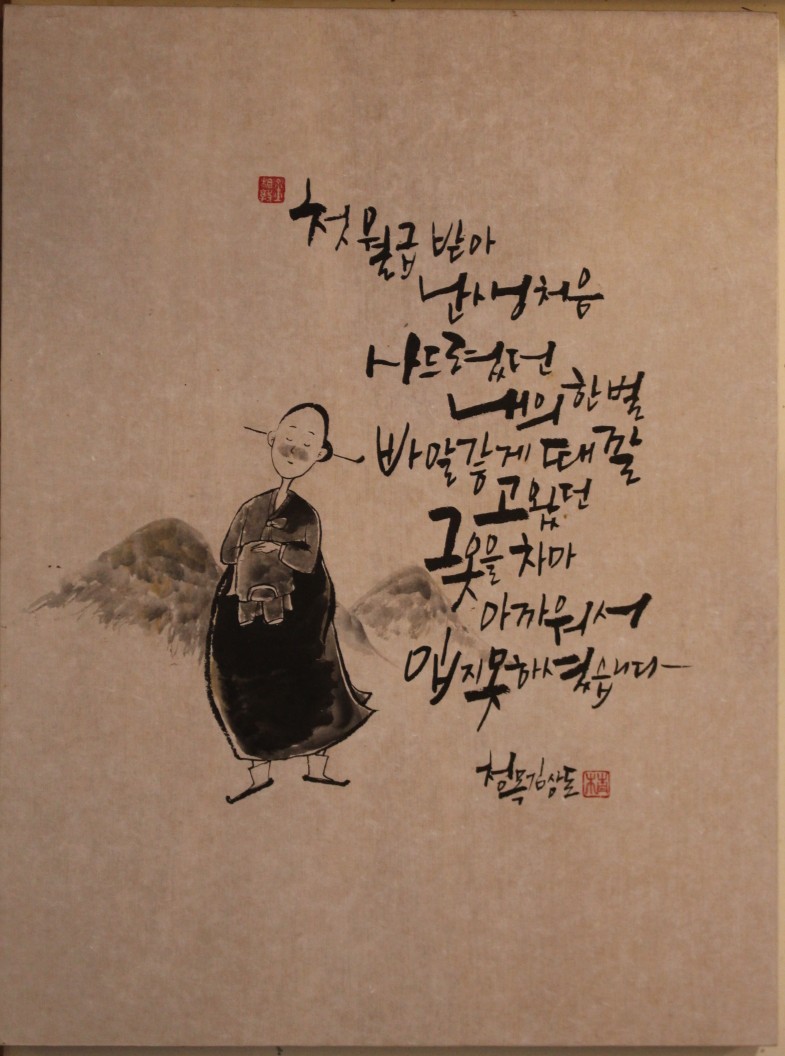 첫 월급 받아
난생처음
사드렸던
내의 한 벌
바알갛게 때깔
고왔던
그 옷을 차마
아까워서
입지 못하셨습니다
청목 김상돈